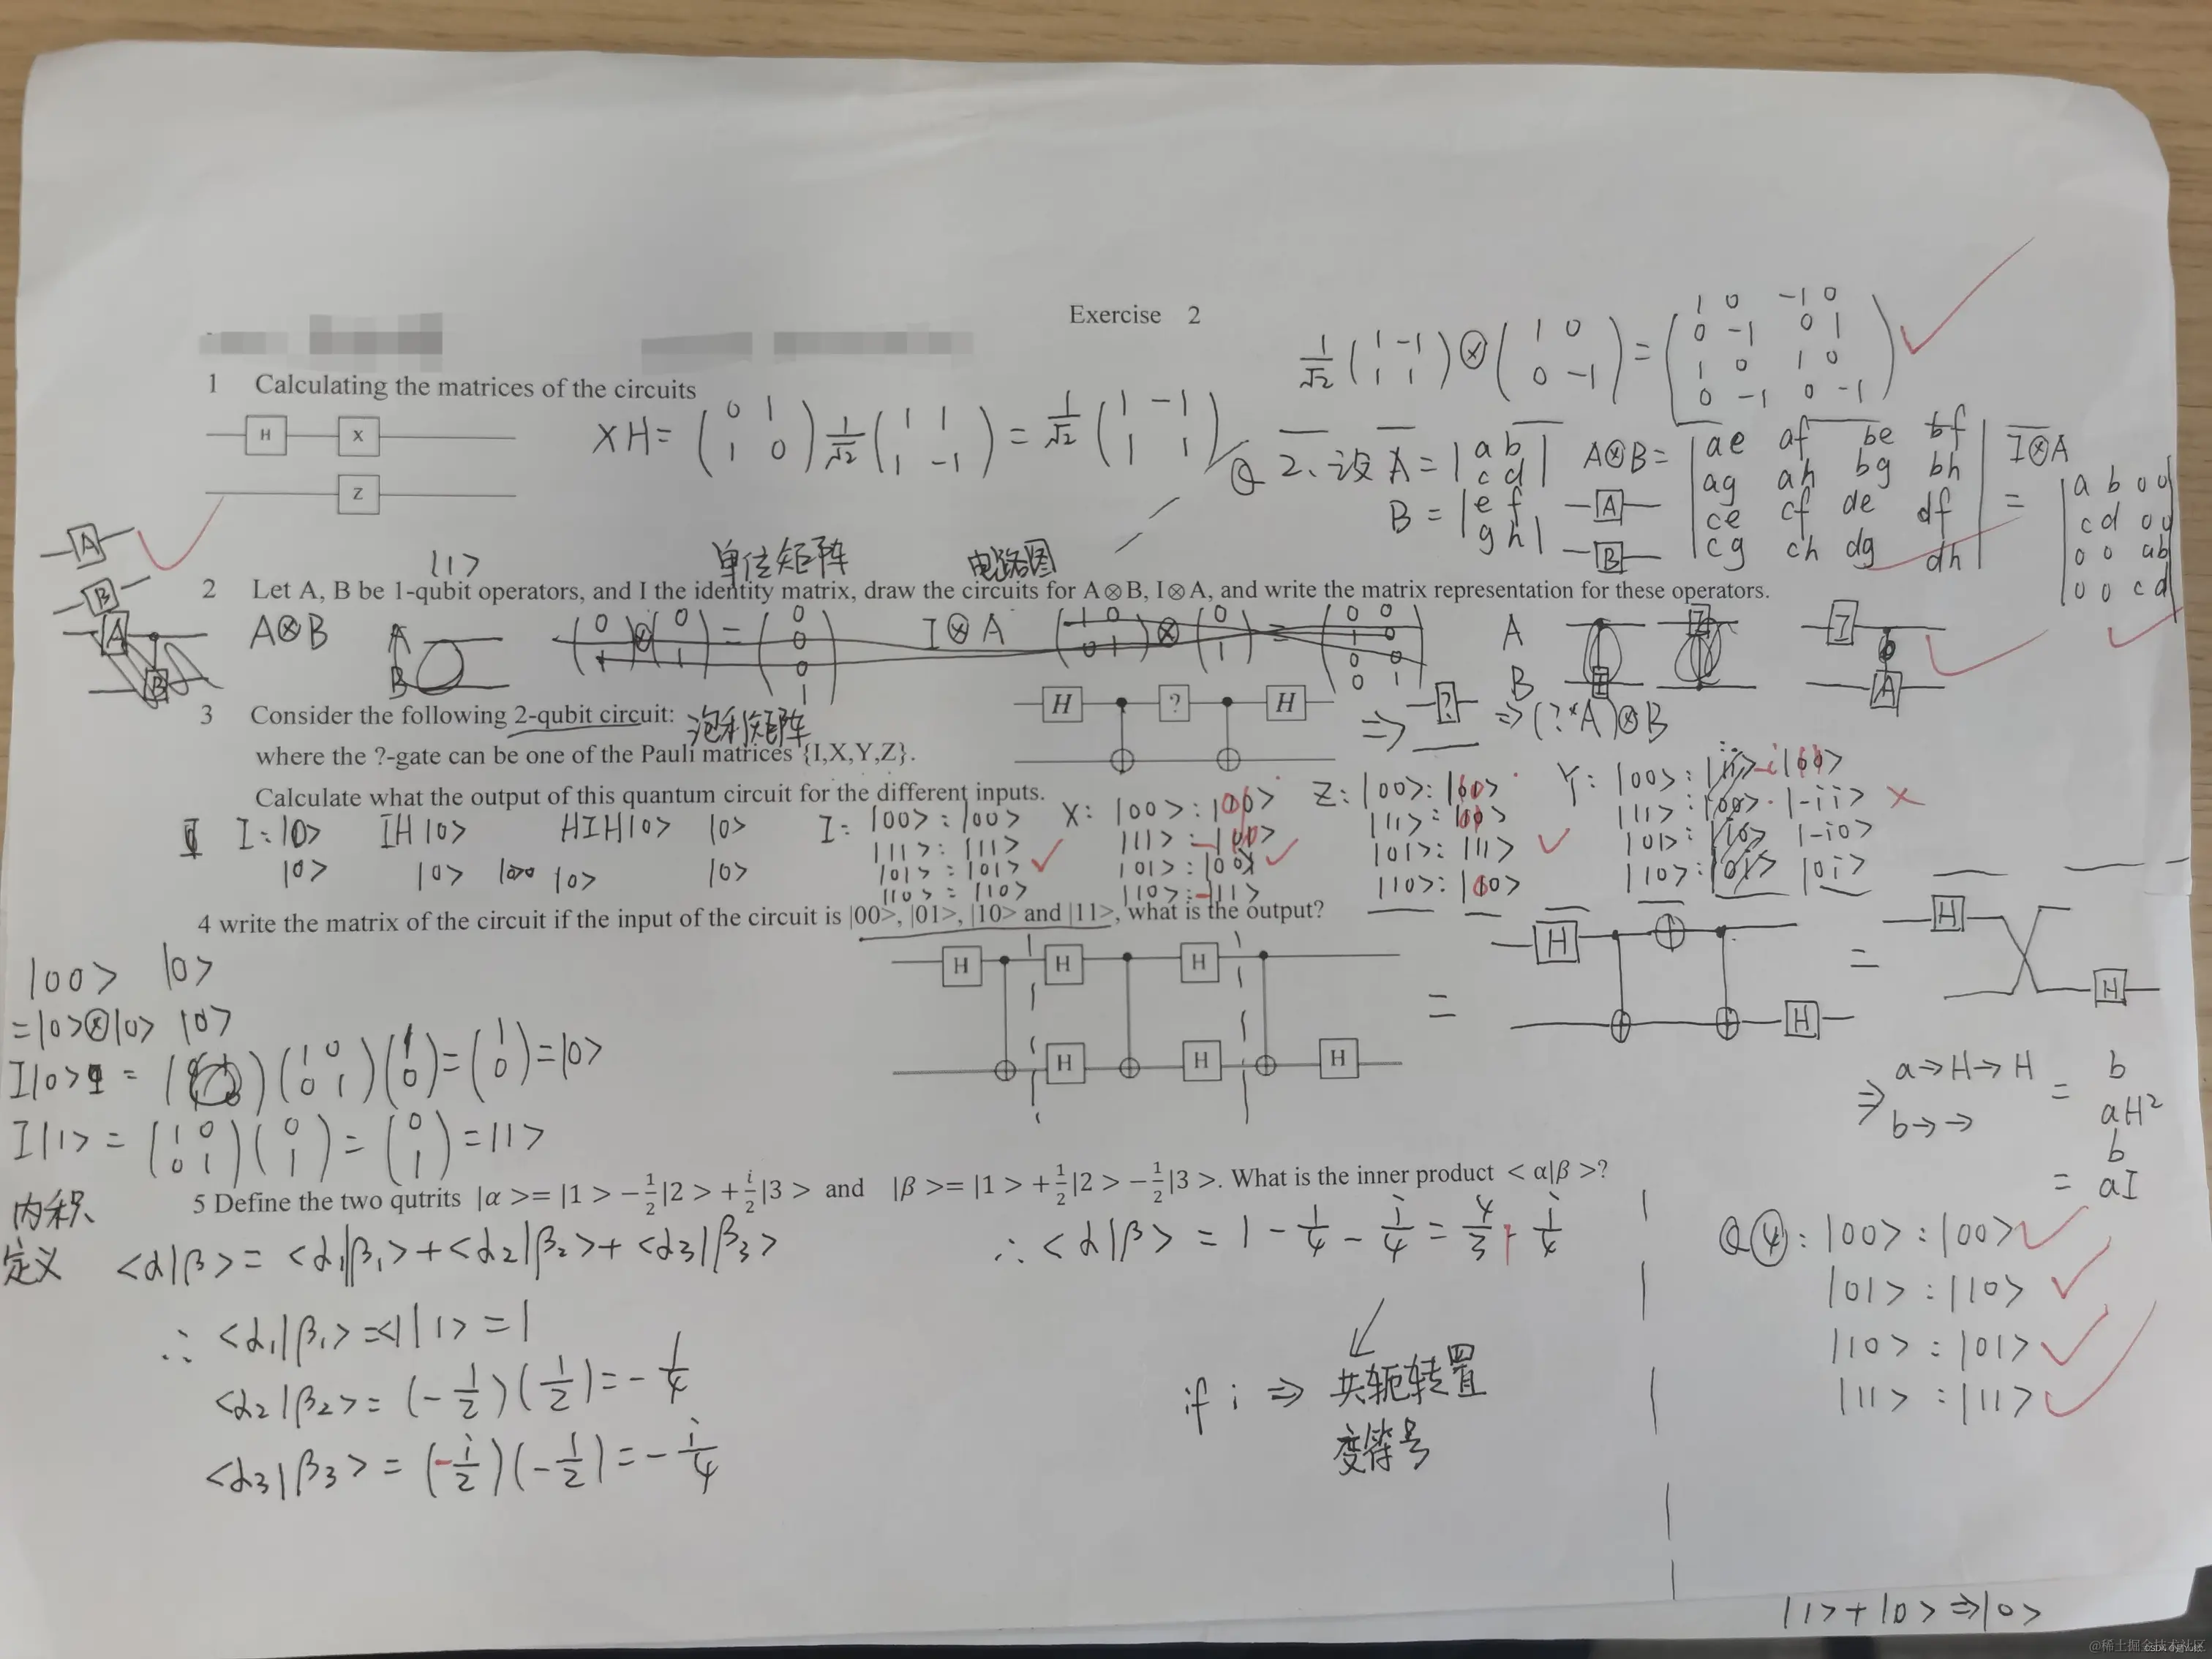 Exercise 2
1/√2 (1 -1 / 1 1) ⊗ (1 0 / 0 -1) = (1 0 -1 0 / 0 -1 0 1 / 1 0 1 0 / 0 -1 0 -1)
1 Calculating the matrices of the circuits
H X
Z
XH = (0 1 / 1 0) 1/√2 (1 1 / 1 -1) = 1/√2 (1 -1 / 1 1)
Q 2. 设 A = |a b / c d|
B = |e f / g h|
A⊗B = |ae af be bf / ag ah bg bh / ce cf de df / cg ch dg dh|
A
B
I⊗A = |a b 0 0 / c d 0 0 / 0 0 a b / 0 0 c d|
A
B
|1>
单位矩阵
电路图
2 Let A, B be 1-qubit operators, and I the identity matrix, draw the circuits for A⊗B, I⊗A, and write the matrix representation for these operators.
A
B
A⊗B
A
B
(0 / 1) ⊗ (0 / 1) = (0 / 0 / 0 / 1)
I⊗A
(1 0 / 0 1) ⊗ (0 / 1) = (0 0 / 1 0 / 0 0 / 0 1)
A
B
I
A
3 Consider the following 2-qubit circuit:
泡利矩阵
H ? H
⇒ ? ⇒ (?*A)⊗B
where the ?-gate can be one of the Pauli matrices {I,X,Y,Z}.
Calculate what the output of this quantum circuit for the different inputs.
I: |0> IH|0> HIH|0> |0>
|0> |0> |0> |0>
I: |00> : |00>
|11> : |11>
|01> : |01>
|10> : |10>
X: |00> :
|11> :
|01> :
|10> : -|11>
Z: |00> :
|11> :
|01> : |11>
|10> : |00>
Y: |00> :
|11> : |-ii>
|01> : |-i0>
|10> : |0i>
4 write the matrix of the circuit if the input of the circuit is |00>, |01>, |10> and |11>, what is the output?
H H H
H H H
=
H
H
=
H
H
|00> |0>
=|0>⊗|0> |0>
I|0> = (1 0 / 0 1)(1 / 0) = (1 / 0) = |0>
I|1> = (1 0 / 0 1)(0 / 1) = (0 / 1) = |1>
⇒ a→H→H = b
b→→ aH²
b
= aI
5 Define the two qutrits |α >= |1 > −1/2|2 > +i/2|3 > and |β >= |1 > +1/2|2 > −1/2|3 >. What is the inner product < α|β >?
内积
定义
<α|β> = <α1|β1> + <α2|β2> + <α3|β3>
∴ <α|β> = 1 - 1/4 - i/4 = 4/3 - i/4
∴ <α1|β1> = <1|1> = 1
<α2|β2> = (-1/2)(1/2) = -1/4
<α3|β3> = (-i/2)(-1/2) = -i/4
if i ⇒ 共轭转置
变符号
Q④: |00> : |00>
|01> : |10>
|10> : |01>
|11> : |11>
|1>+|0>⇒|0>
@稀土掘金技术社区